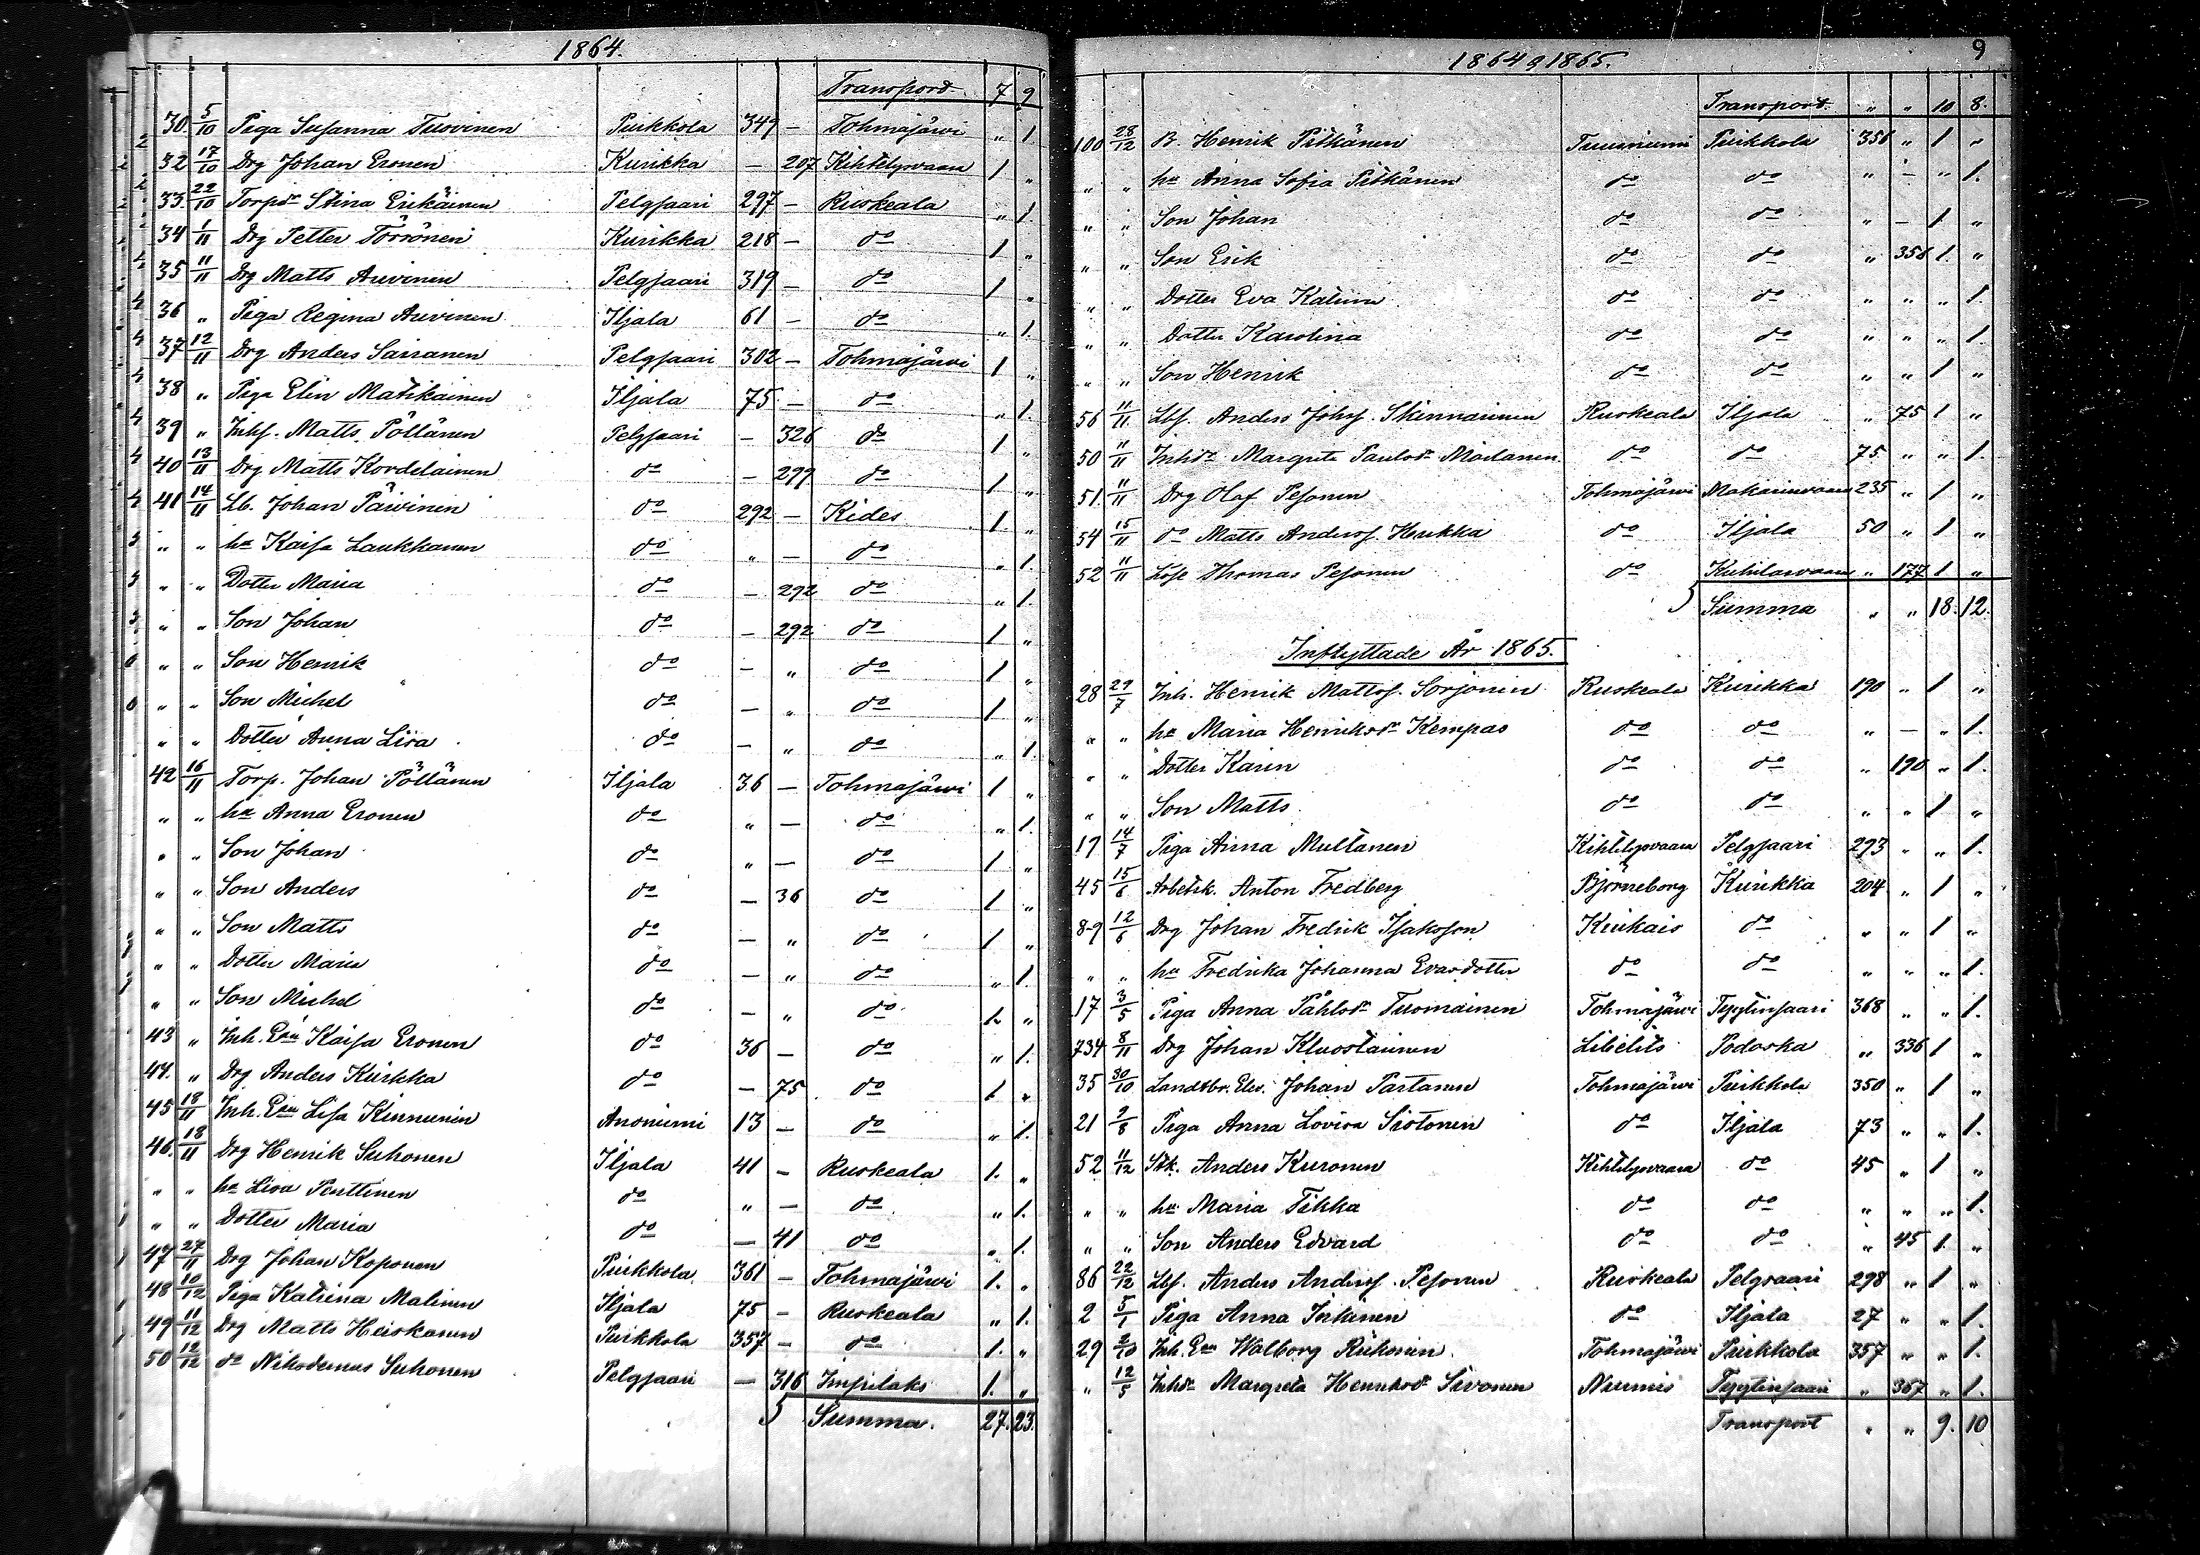 1864.
Transport 7 9
30. 5/10 Piga Susanna Tuovinen Puikkola 349 — Tohmajärwi „ 1.
32 17/10 Drg Johan Eronen Kurikka — 207 Kihtelysvaara 1 „
33. 22/10 Torpdr Stina Erikäinen Pelgjaari 297 — Ruskeala „ 1.
34 1/11 Drg Petter Törrönen Kurikka 218 — do 1 „
35 11/11 Drg Matts Auvinen Pelgjaari 319 — do 1 „
36 „ Piga Regina Auvinen Iljala 61 — do „ 1.
37 12/11 Drg Anders Sairanen Pelgjaari 302 — Tohmajärwi 1 „
38 „ Piga Elin Matikainen Iljala 75 — do „ 1.
39 „ Inhs. Matts Pöllänen Pelgjaari — 326 do 1 „
40 13/11 Drg Matts Kordelainen do — 299 do 1 „
41 14/11 Lb. Johan Päivinen do 292 — Kides 1. „
„ „ hu Kaisa Laukkanen do „ — do „ 1.
„ „ Dotter Maria do — 292 do „ 1.
„ „ Son Johan do — 292 do 1 „
„ „ Son Henrik do — „ do 1 „
„ „ Son Michel do — „ do 1 „
„ „ Dotter Anna Lisa do — „ do „ 1.
42 16/11 Torp. Johan Pöllänen Iljala 36 — Tohmajärwi 1 „
„ „ hu Anna Eronen do „ — do „ 1.
„ „ Son Johan do „ — do 1 „
„ „ Son Anders do — 36 do 1 „
„ „ Son Matts do — „ do 1 „
„ „ Dotter Maria do — „ do „ 1.
„ „ Son Michel do — „ do 1. „
43 „ Inh. Enk Kaisa Eronen do 36 — do „ 1.
44. „ Drg Anders Kurkka do — 75 do 1 „
45 18/11 Inh. Enk Lisa Kinnunen Anoniemi 13 — do „ 1.
46. 18/11 Drg Henrik Suhonen Iljala 41 — Ruskeala 1. „
„ „ hu Lisa Penttinen do „ — do „ 1.
„ „ Dotter Maria do — 41 do „ 1.
47 27/11 Drg Johan Koponen Puikkola 361 — Tohmajärwi 1. „
48 10/12 Piga Katrina Malinen Iljala 75 — Ruskeala „ 1.
49 11/12 Drg Matts Heiskanen Puikkola 357 — do 1. „
50 12/12 do Nikodemus Suhonen Pelgjaari — 316 Impilaks 1. „
Summa. 27. 23.
1864 o 1865. 9
Transport „ „ 10 8.
100 28/12 B. Henrik Pitkänen Puikkola 356 „ 1 „
„ „ hu Anna Sofia Pitkänen do do „ — „ 1.
„ „ Son Johan do do „ — 1 „
„ „ Son Erik do do „ 356 1. „
„ „ Dotter Eva Katrina do do „ „ „ 1.
„ „ Dotter Karolina do do „ „ „ 1.
„ „ Son Henrik do do „ „ 1 „
56 11/11 Lbs. Anders Johs. Skinnarinen Ruskeala Iljala „ 75 1 „
50 11/11 Inhdr Margreta Paulsdr Moilanen do do 75. „ „ 1.
51. 11/11 Drg Olof Pesonen Tohmajärwi Makarinvaara 235 „ 1 „
54 15/11 do Matts Anderss. Hurkka do Iljala 50 „ 1 „
52 11/11 Thomas Pesonen do „ 177 1 „
Summa „ „ 18. 12.
Inflyttade År 1865.
28 29/7 Inh. Henrik Mattss. Sorjonen Ruskeala Kurikka 190 „ 1 „
„ „ hu Maria Henriksdr Kempas do do „ — „ 1.
„ „ Dotter Karin do do „ 190 „ 1.
„ „ Son Matts do do „ „ 1 „
17 14/7 Piga Anna Multanen Kihtelysvaara Pelgjaari 293 „ „ 1.
45 15/6 Arbetsk. Anton Fredberg Björneborg Kurikka 204 „ 1 „
8-9 12/6 Drg Johan Fredrik Isaksson Kiukais do „ „ 1 „
„ „ hu Fredrika Johanna Evasdotter do do „ „ „ 1.
17 3/5 Piga Anna Påhlsdr Tuomainen Tohmajärwi Tyytinsaari 368 „ „ 1.
734 8/11 Drg Johan Kluostainen Libelits Podoska „ 336 1 „
35 30/10 Landtbr. Elev. Johan Partanen Tohmajärwi Puikkola 350 „ 1 „
21 2/8 Piga Anna Lovisa Siotonen do Iljala 73 „ „ 1.
52 11/12 Anders Kuronen Kihtelysvaara do 45 „ 1 „
„ „ hu Maria Tikka do do „ „ „ 1.
„ „ Son Anders Edvard do do „ 45 1. „
86 22/12 Lbs. Anders Anderss. Pesonen Ruskeala Pelgsaari 298 „ 1 „
2 5/1 Piga Anna Inkinen do Iljala 27 „ „ 1.
29 2/10 Inh. Enk Walborg Riikonen Tohmajärwi Puikkola 357 „ „ 1.
„ 12/5 Inhdr Margreta Henriksdr Sivonen Nurmis Tyytinsaari „ 367 „ 1.
Transport „ „ 9. 10